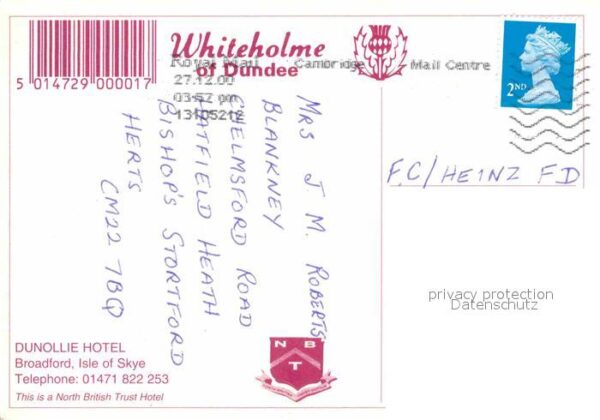 Whiteholme
of Dundee
5 014729 000017
Royal Mail Cambridge Mail Centre
27.12.00
03:57 pm
13105212
2ND
MRS J M. ROBERTS
BLANKNEY
CHELMSFORD ROAD
HATFIELD HEATH
BISHOP'S STORTFORD
HERTS
CM22 7BQ
F.C/HEINZ FD
privacy protection
Datenschutz
DUNOLLIE HOTEL
Broadford, Isle of Skye
Telephone: 01471 822 253
This is a North British Trust Hotel
N B
T